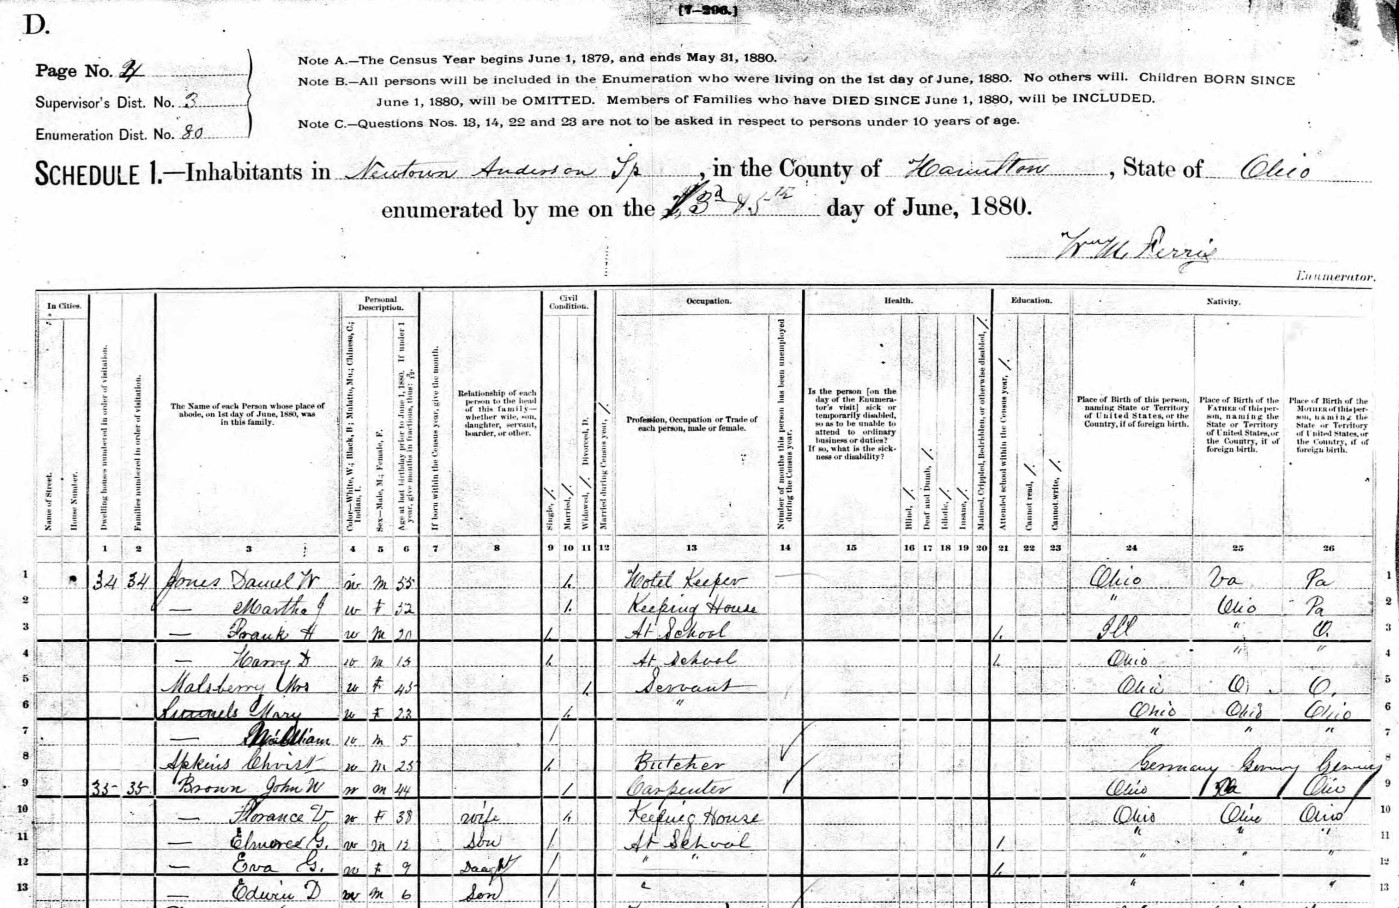 [7-296.]
D.
Page No. 4
Supervisor's Dist. No. 3
Enumeration Dist. No. 80
Note A.—The Census Year begins June 1, 1879, and ends May 31, 1880.
Note B.—All persons will be included in the Enumeration who were living on the 1st day of June, 1880. No others will. Children BORN SINCE
June 1, 1880, will be OMITTED. Members of Families who have DIED SINCE June 1, 1880, will be INCLUDED.
Note C.—Questions Nos. 13, 14, 22 and 23 are not to be asked in respect to persons under 10 years of age.
SCHEDULE 1.—Inhabitants in Newtown Anderson Tp, in the County of Hamilton, State of Ohio
enumerated by me on the 3d & 5th day of June, 1880.
Wm M. Ferris
Enumerator.
In Cities.
Name of Street.
House Number.
Dwelling houses numbered in order of visitation.
Families numbered in order of visitation.
The Name of each Person whose place of abode, on 1st day of June, 1880, was in this family.
Personal Description.
Color—White, W.; Black, B.; Mulatto, Mu.; Chinese, C.; Indian, I.
Sex—Male, M.; Female, F.
Age at last birthday prior to June 1, 1880. If under 1 year, give months in fractions, thus: 3/12.
If born within the Census year, give the month.
Relationship of each person to the head of this family—whether wife, son, daughter, servant, boarder, or other.
Civil Condition.
Single, /.
Married, /.
Widowed, /. Divorced, D.
Married during Census year, /.
Occupation.
Profession, Occupation or Trade of each person, male or female.
Number of months this person has been unemployed during the Census year.
Health.
Is the person [on the day of the Enumerator's visit] sick or temporarily disabled, so as to be unable to attend to ordinary business or duties? If so, what is the sickness or disability?
Blind, /.
Deaf and Dumb, /.
Idiotic, /.
Insane, /.
Maimed, Crippled, Bedridden, or otherwise disabled, /.
Education.
Attended school within the Census year, /.
Cannot read, /.
Cannot write, /.
Nativity.
Place of Birth of this person, naming State or Territory of United States, or the Country, if of foreign birth.
Place of Birth of the FATHER of this person, naming the State or Territory of United States, or the Country, if of foreign birth.
Place of Birth of the MOTHER of this person, naming the State or Territory of United States, or the Country, if of foreign birth.
1 2 3 4 5 6 7 8 9 10 11 12 13 14 15 16 17 18 19 20 21 22 23 24 25 26
1 34 34 Jones Daniel W w m 55 /. Hotel Keeper Ohio Va Pa 1
2 — Martha J w F 52 /. Keeping House " Ohio Pa 2
3 — Frank H w M 20 /. At School /. Ill " O. 3
4 — Harry D w m 15 /. At School /. Ohio " " 4
5 Malsberry Mrs w F 45 /. Servant Ohio O. O. 5
6 Mary w F 28 /. " Ohio Ohio Ohio 6
7 — William w m 5 / " " " 7
8 Apkins Christ w m 25 /. Butcher Germany Germany Germany 8
9 35 35 Brown John W w m 44 / Carpenter Ohio Ohio 9
10 — Florance V w F 38 wife /. Keeping House Ohio Ohio Ohio 10
11 — G. w m 12 Son / At School / " " " 11
12 — Eva G. w F 9 Daught / " " /. " " " 12
13 — Edwin D w m 6 Son / " " " " 13